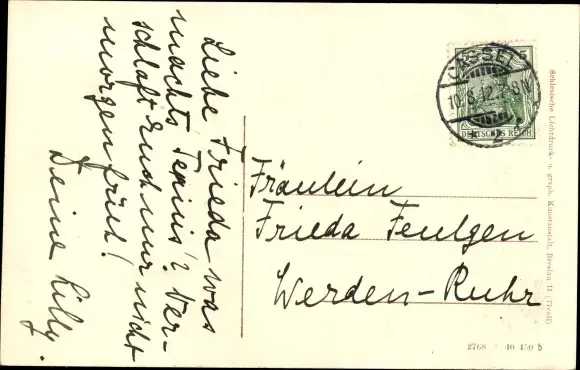 Liebe Frieda was
machts Tennis? Ver-
schlaft Euch nur nicht
morgen früh!
Deine Lilly.
CASSEL
10.8.12.7-8N
* 2
5
DEUTSCHES REICH
Fräulein
Frieda Feulgen
Werden-Ruhr
Schlesische Lichtdruck- u. graph. Kunstanstalt, Breslau II (Tivoli)
2768 40 450 b